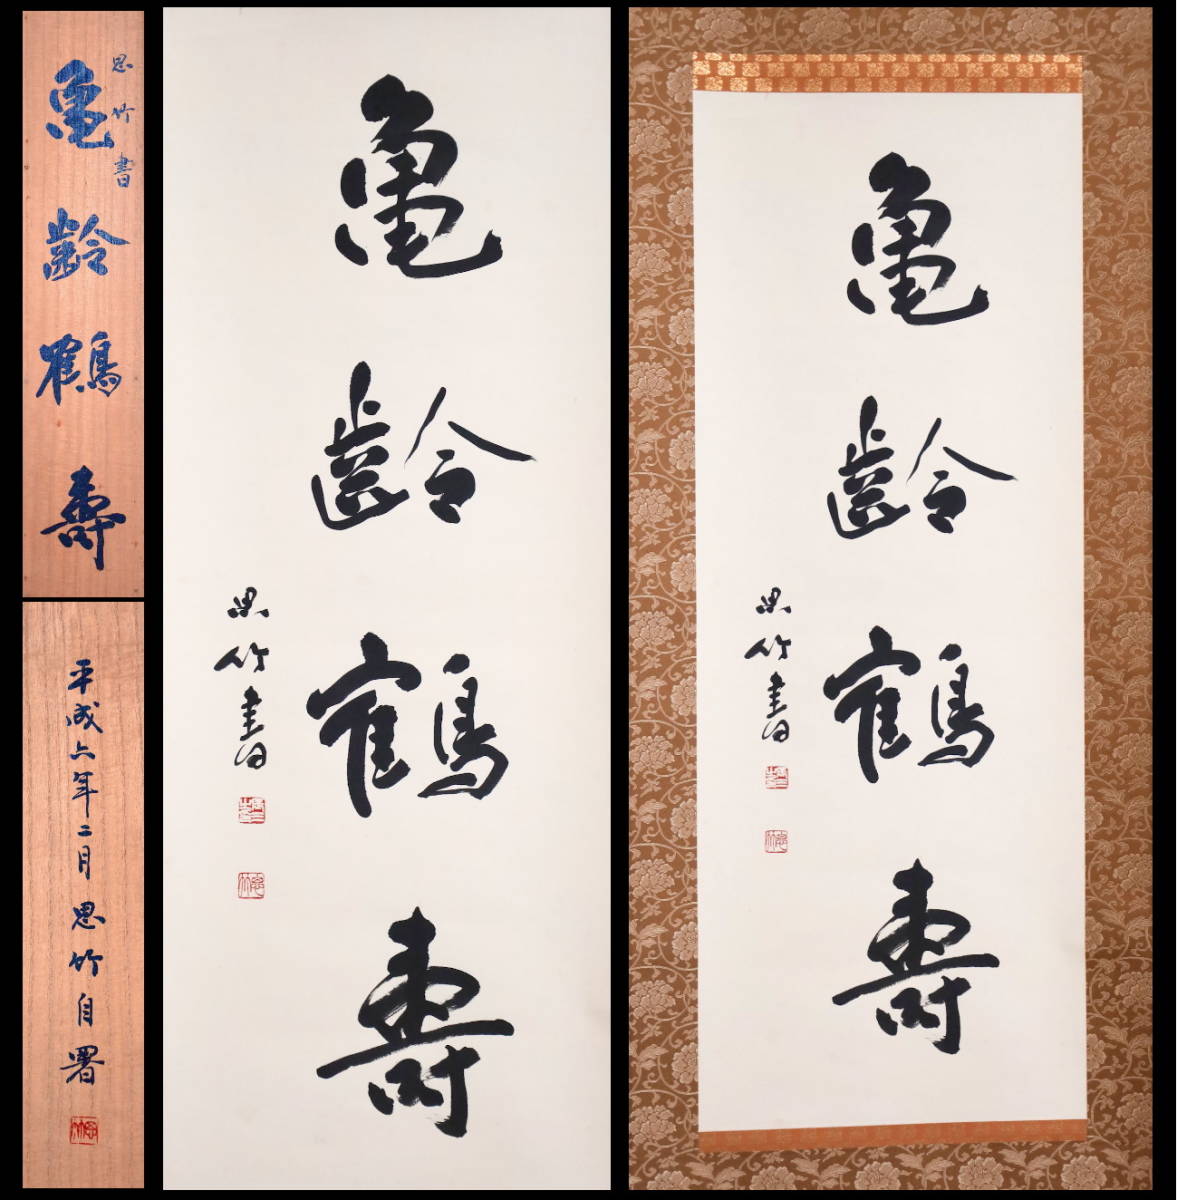 思竹書
亀齢鶴壽
平成六年二月思竹自署
亀齢鶴壽
思竹書
亀齢鶴壽
思竹書